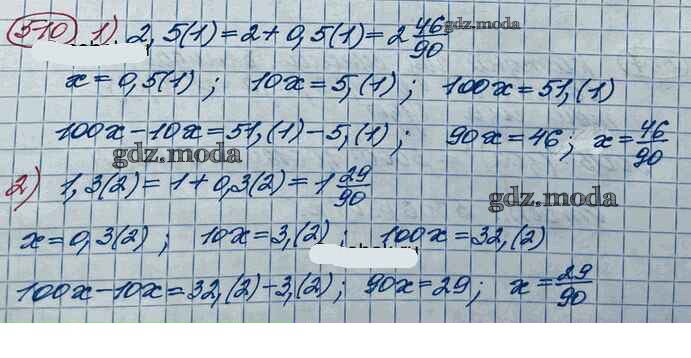 510) 1) 2,5(1) = 2 + 0,5(1) = 2 46/90
gdz.moda
x = 0,5(1) ; 10x = 5,(1) ; 100x = 51,(1)
100x - 10x = 51,(1) - 5,(1) ; 90x = 46 ; x = 46/90
gdz.moda
2) 1,3(2) = 1 + 0,3(2) = 1 29/90
gdz.moda
x = 0,3(2) ; 10x = 3,(2) ; 100x = 32,(2)
100x - 10x = 32,(2) - 3,(2) ; 90x = 29 ; x = 29/90